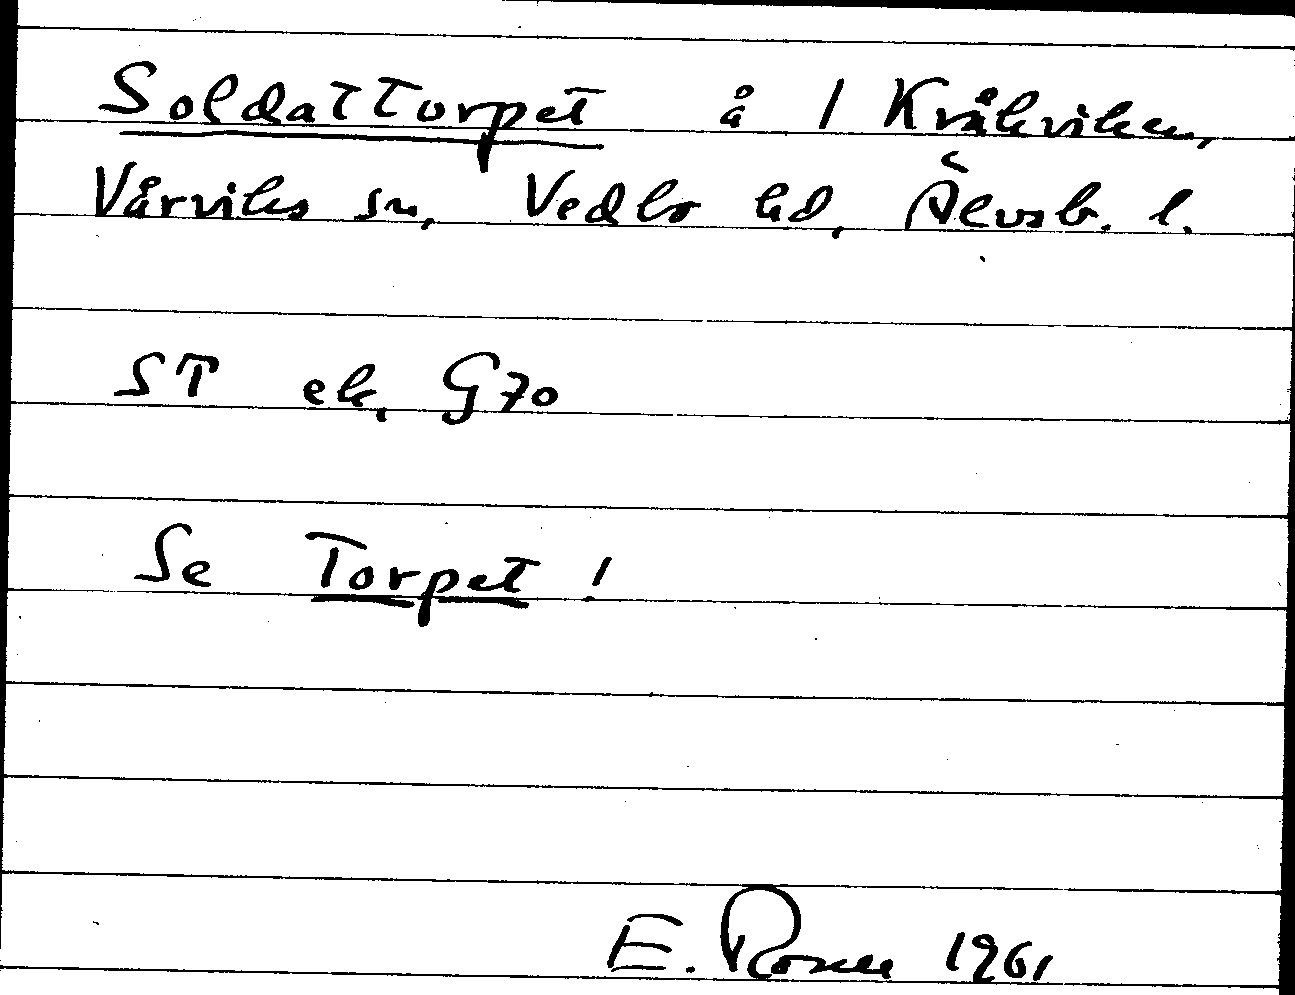 Soldattorpet å 1 Kråkviken,
Vårviks sn, Vedbo hd, Älvsb. l.
ST ek. G70
Se Torpet!
E. Rosell 1961